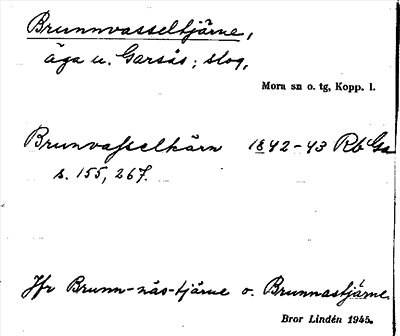 Brunnvasseltjärne,
äga u. Garsås; slog.
Mora sn o. tg, Kopp. l.
Brunvasselkärn 1842-43 Rb Ga
s. 155, 267.
Jfr Brunn-näs-tjärne o. Brunnastjärne.
Bror Lindén 1945.